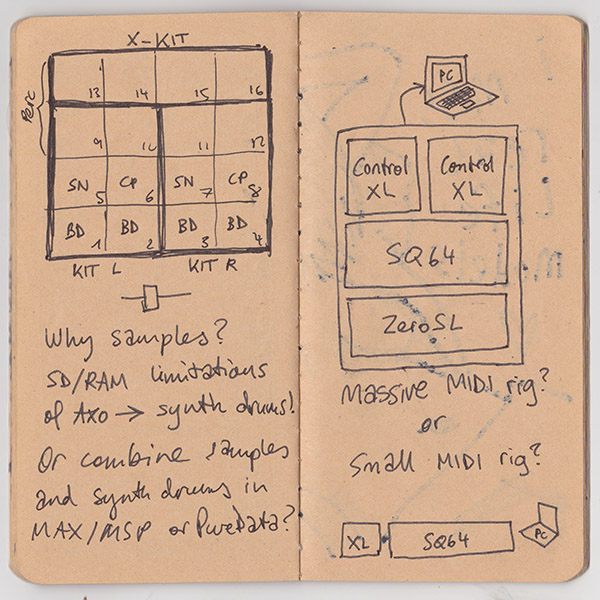 X-KIT
Perc
13 14 15 16
9 10 11 12
SN 5 CP 6 SN 7 CP 8
BD 1 BD 2 BD 3 BD 4
KIT L KIT R
Why samples?
SD/RAM limitations
of AXO → synth drums!
Or combine samples
and synth drums in
MAX/MSP or PureData?
PC
Control XL Control XL
SQ64
ZeroSL
Massive MIDI rig?
or
Small MIDI rig?
XL SQ64 PC